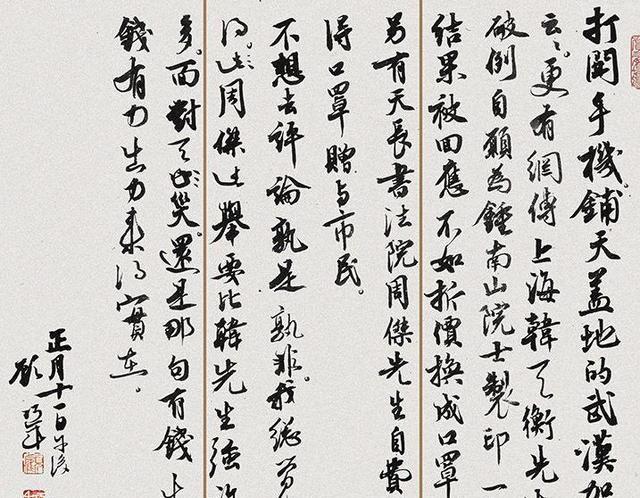 打開手機。鋪天蓋地的武漢加
云云。更有網傳上海韓天衡先生
破例自願為鍾南山院士製印一
結果被回應不如折價換成口罩
另有天長書法院周傑先生自費
得口罩贈与市民。
不想去評論孰是孰非。我總覺
得此周傑此舉要比韓先生強許
多。面對天此災。還是那句有錢出
錢有力出力來得實在。
正月十一日午後